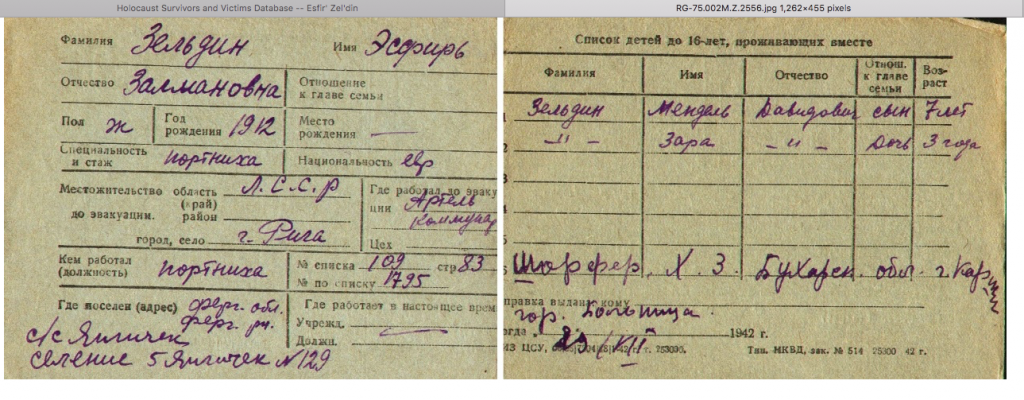 Holocaust Survivors and Victims Database -- Esfir' Zel'din
Фамилия Зельдин Имя Эсфирь
Отчество Залмановна Отношение к главе семьи
Пол ж Год рождения 1912 Место рождения —
Специальность и стаж портниха Национальность евр
Местожительство область Л.С.С.р
(край)
до эвакуации. район
город, село г. Рига
Где работал до эваку
ции Артель
Коммунар
Цех
Кем работал (должность) портниха
№ списка 109 стр 83
№ по списку 1795
Где поселен (адрес) ферг. обл.
ферг. рн.
с/с Яличек
селение 5 Яличек N129
Где работает в настоящее врем
Учрежд. —
Должн.
RG-75.002M.Z.2556.jpg 1,262×455 pixels
Список детей до 16-лет, проживающих вместе
Фамилия Имя Отчество Отнош. к главе семьи Воз-раст
1 Зельдин Мендель Давидович сын 7 лет
2 -"- Зара -"- дочь 3 года
3
4
5
Шорфер. Х. З. Бухарск. обл. г. Кар
правка выдана кому
гор. больница.
огда 29/VII 1942 г.
ИЗ ЦСУ, 42 г. т. 253000. Тип. МКВД, зак. № 514 25300 42 г.